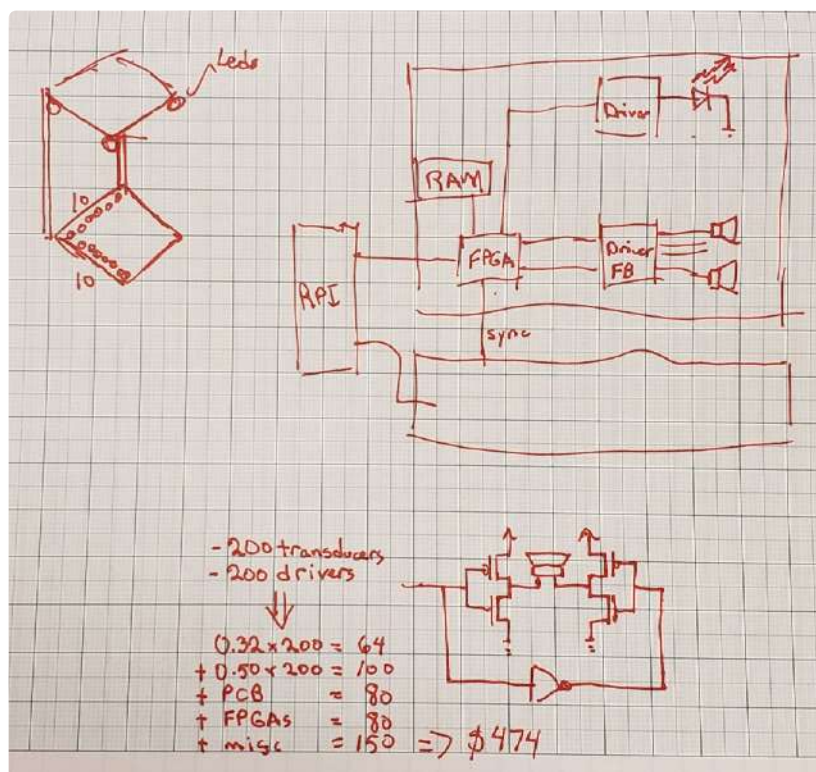 Leds
10
10
Driver
RAM
FPGA
Driver
FB
RPI
sync
- 200 transducers
- 200 drivers
0.32 x 200 = 64
+ 0.50 x 200 = 100
+ PCB = 80
+ FPGAs = 80
+ misc = 150 => $474